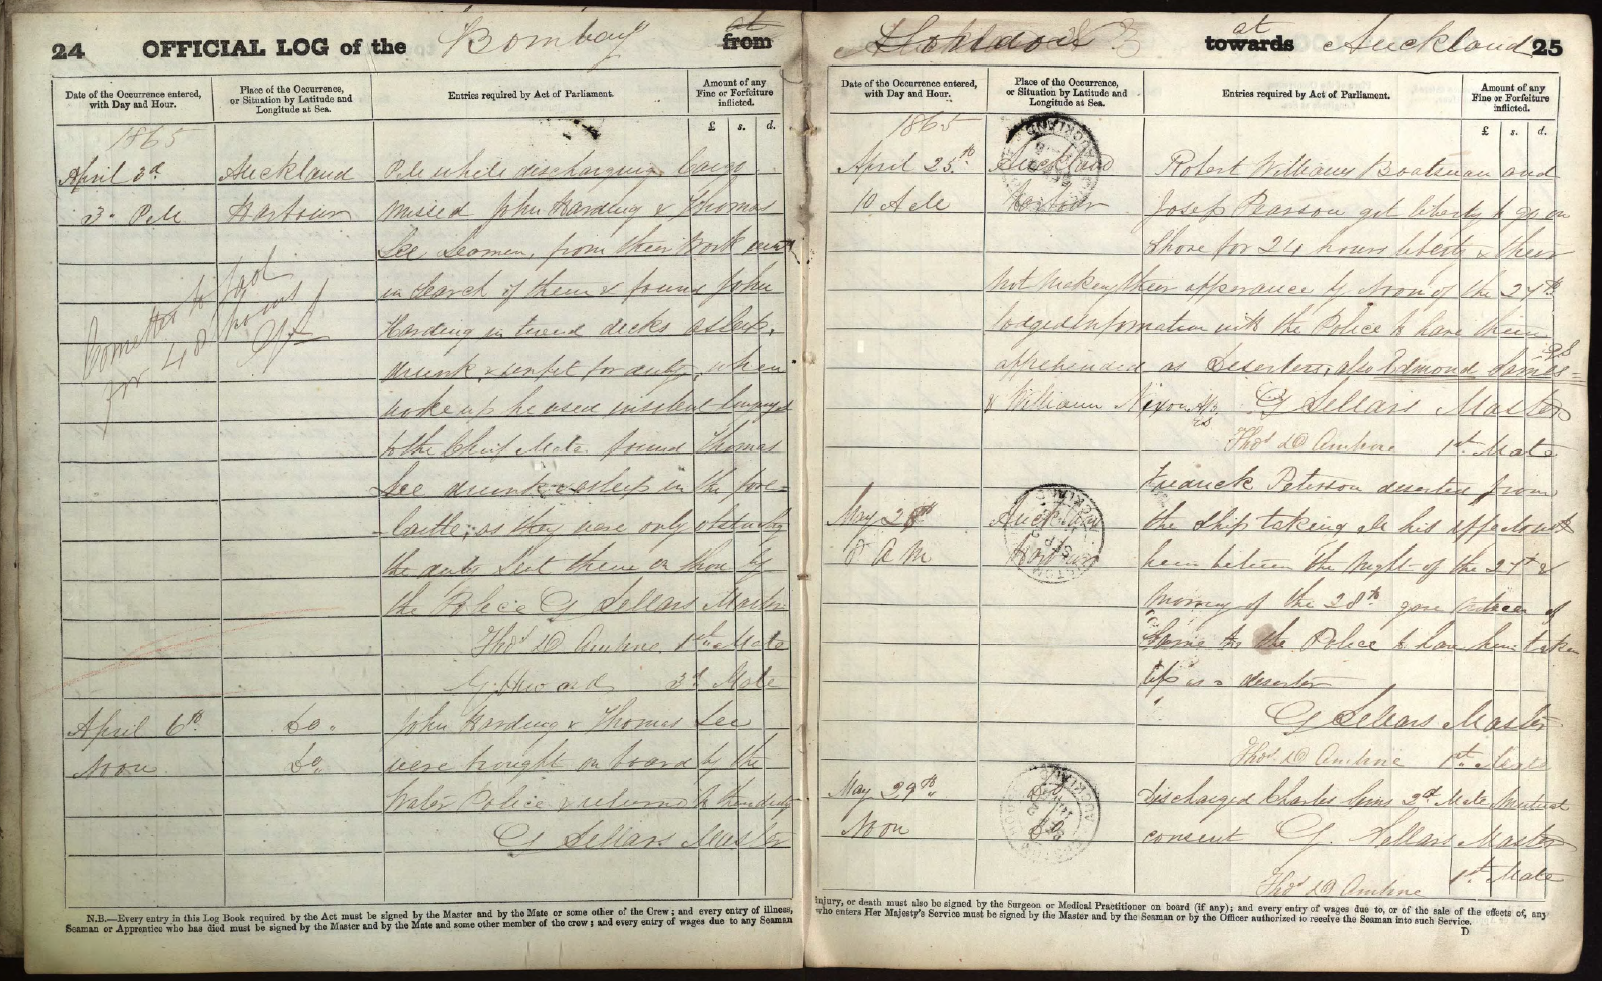 24
OFFICIAL LOG of the Bombay
at
from
Date of the Occurrence entered, with Day and Hour.
Place of the Occurrence, or Situation by Latitude and Longitude at Sea.
Entries required by Act of Parliament.
Amount of any Fine or Forfeiture inflicted.
£ s. d.
1865
April 3d Auckland PM while discharging Cargo
3. PM Harbour missed John Harding & Thomas
Lee Seamen, from their Work went
in search of them & found John
Harding in tween decks asleep,
drunk, & unfit for duty, when
woke up he used insolent language
to the Chief Mate found Thomas
Lee drunk & asleep in the fore=
-Castle; as they were only obstructing
the duty Sent them on shore by
the Police G Sellars Master
Thos D Ambrne 1st Mate
3d Mate
Committed to Gaol
for 48 hours
April 6th Do. John Harding & Thomas Lee
Noon Do. were brought on board by the
Water Police & returnd to their duty
G Sellars Master
N.B.—Every entry in this Log Book required by the Act must be signed by the Master and by the Mate or some other of the Crew; and every entry of illness,
Seaman or Apprentice who has died must be signed by the Master and by the Mate and some other member of the crew; and every entry of wages due to any Seaman
at
towards Auckland 25
Date of the Occurrence entered, with Day and Hour.
Place of the Occurrence, or Situation by Latitude and Longitude at Sea.
Entries required by Act of Parliament.
Amount of any Fine or Forfeiture inflicted.
£ s. d.
1865
April 25th Auckland Robert Williams Boatsman and
10 AM Harbour Josep Pearson got liberty to go on
Shore for 24 hours liberty & their
not making their apperance by Noon of the 27th
lodged information with the Police to have them
apprehended as Deserters, also Edmond James
& William Nixon G Sellars Master
Thos D Ambrne 1st Mate
Fredrick Peterson deserted from
May 28th Auckland the Ship taking all his effects must
8 AM Harbour been between the Night of the 27th &
Morning of the 28th gave notice of
same to the Police to have him taken
up as a deserter
G Sellars Master
Thos D Ambrne 1st Mate
May 29th Do Discharged Charles Sims 2d Mate Mutual
Noon Do consent G. Sellars Master
1st Mate
Thos D Ambrne
injury, or death must also be signed by the Surgeon or Medical Practitioner on board (if any); and every entry of wages due to, or of the sale of the effects of, any
who enters Her Majesty's Service must be signed by the Master and by the Seaman or by the Officer authorized to receive the Seaman into such Service.
D